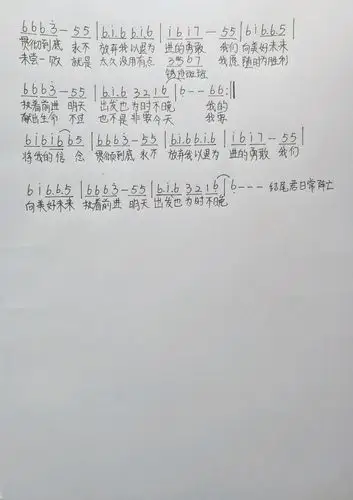 6663－55|6.i.6 6.i.6|i6i7－55|6i6.6.5|
贯彻到底 永不 放弃我以退为 进的勇敢 我们 向美好未来
未尝一败 就是 太久没有点 3567 我愿 随时为胜利
错过斑斑
6663－55|6.i.6 3216|6－－66:‖
执着前进 明天 出发也为时不晚 我的
献出生命 不过 也不是非要今天 我要
6i6i665|6663－55|6.i.66.i.6|i6i7－55|
将我的信念 贯彻到底 永不 放弃我以退为 进的勇敢 我们
6i6.6.5|6663－55|6.i.6 3216|6－－－ 结尾君日常阵亡
向美好未来 执着前进 明天 出发也为时不晚